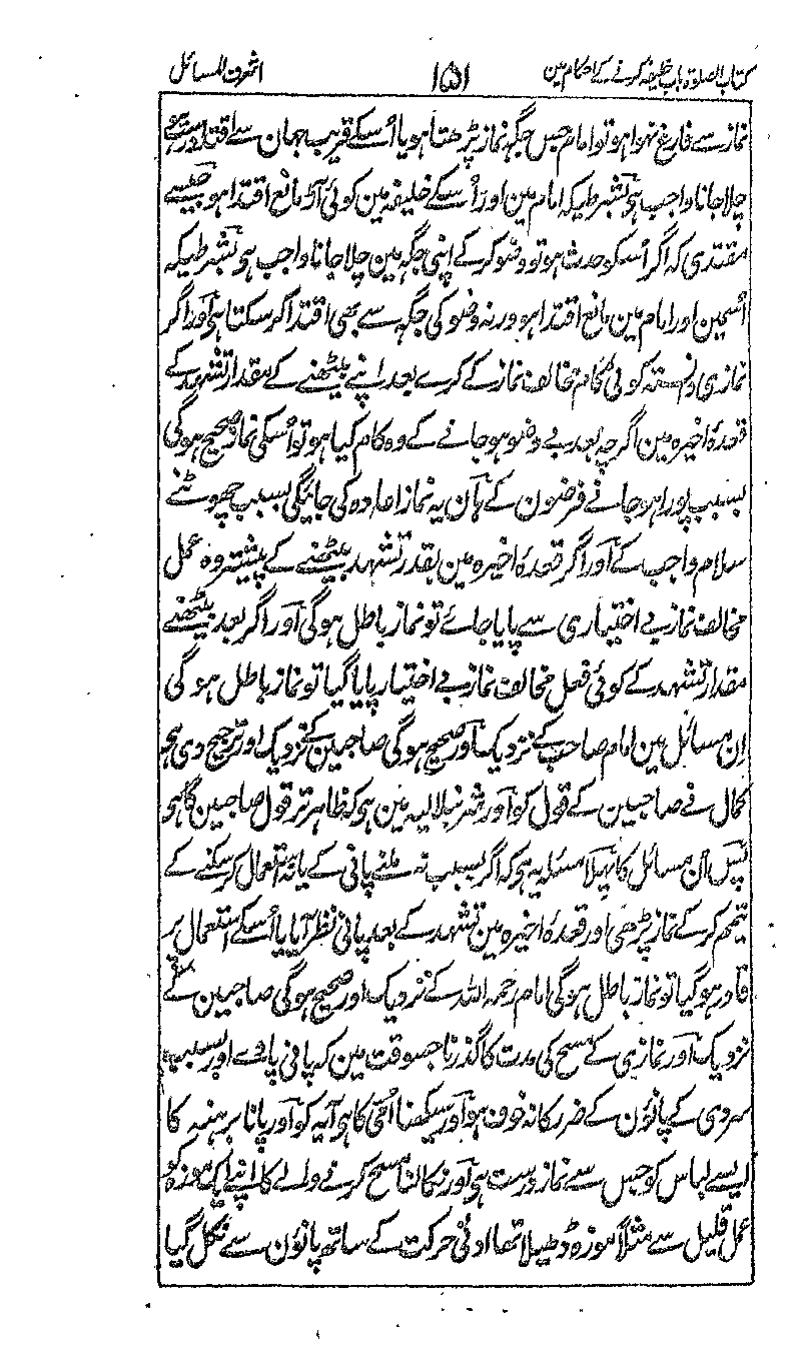 کتاب الصلوۃ باب خلیفہ کرنے کے احکام مین
۱۵۱
اشرف المسائل
نماز سے فارغ نہوا ہو تو امام جس جگہ نماز پڑھتا ہو یا اُسکے قریب جہان سے اقتدا درست ہو
چلا جانا واجب ہو بشرطیکہ امام مین اور اُسکے خلیفہ مین کوئی آڑ مانع اقتدا ہو جیسے
مقتدی کہ اگر اُسکو حدث ہو تو وضو کرکے اپنی جگہ مین چلا جانا واجب ہو بشرطیکہ
اُسمین اور امام مین مانع اقتدا ہو ورنہ وضو کی جگہ سے بھی اقتدا کر سکتا ہو اور اگر
نمازی دانستہ کوئی کام مخالف نماز کے کرے بعد اپنے بیٹھنے کے مقدار تشہد کے
قعدۂ اخیرہ مین اگرچہ بعد بے وضو ہو جانے کے وہ کام کیا ہو تو اُسکی نماز صحیح ہوگی
بسبب پورا ہو جانے فرضون کے ہان یہ نماز اعادہ کی جائیگی بسبب چھوٹنے
سلام واجب کے اور اگر قعدۂ اخیرہ مین بقدر تشہد بیٹھنے کے پیشتر وہ عمل
مخالف نماز بے اختیاری سے پایا جائے تو نماز باطل ہوگی اور اگر بعد بیٹھنے
مقدار تشہد کے کوئی فعل مخالف نماز بے اختیار پایا گیا تو نماز باطل ہوگی
اِن مسائل مین امام صاحب کے نزدیک اور صحیح ہوگی صاحبین کے نزدیک اور ترجیح دی ہو
کمال نے صاحبین کے قول کو اور شرنبلالیہ مین ہو کہ ظاہر تر قول صاحبین کا ہو
پس اُن مسائل کا پہلا مسئلہ یہ ہو کہ اگر بسبب نہ ملنے پانی کے یا نہ استعمال کر سکنے کے
تیمم کرکے نماز پڑھی اور قعدۂ اخیرہ مین تشہد کے بعد پانی نظر آیا یا اُسکے استعمال پر
قادر ہوگیا تو نماز باطل ہوگی امام رحمہ اللہ کے نزدیک اور صحیح ہوگی صاحبین کے
نزدیک اور نمازی کے مسح کی مدت کا گذرنا جسوقت مین کہ پانی پاوے اور بسبب
سردی کے پانؤن کے ضرر کا نہ خوف ہو اور سیکھنا اُمّی کا ہو آیہ کو اور پانا برہنہ کا
ایسے لباس کو جس سے نماز درست ہو اور نکالنا مسح کرنے والے کا اپنے ایک موزہ کو
عمل قلیل سے مثلاً موزہ ڈھیلا تھا ادنیٰ حرکت کے ساتھ پانؤن سے نکل گیا